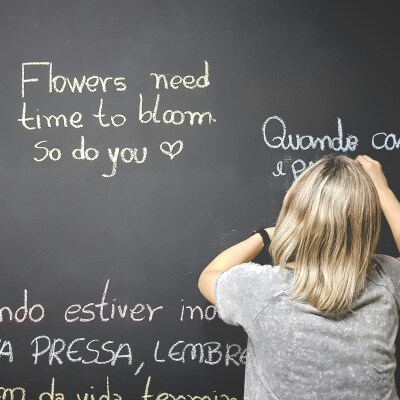 Flowers need
time to bloom.
So do you ♡
Quando
e
estiver
PRESSA, LEMBRE
da vida